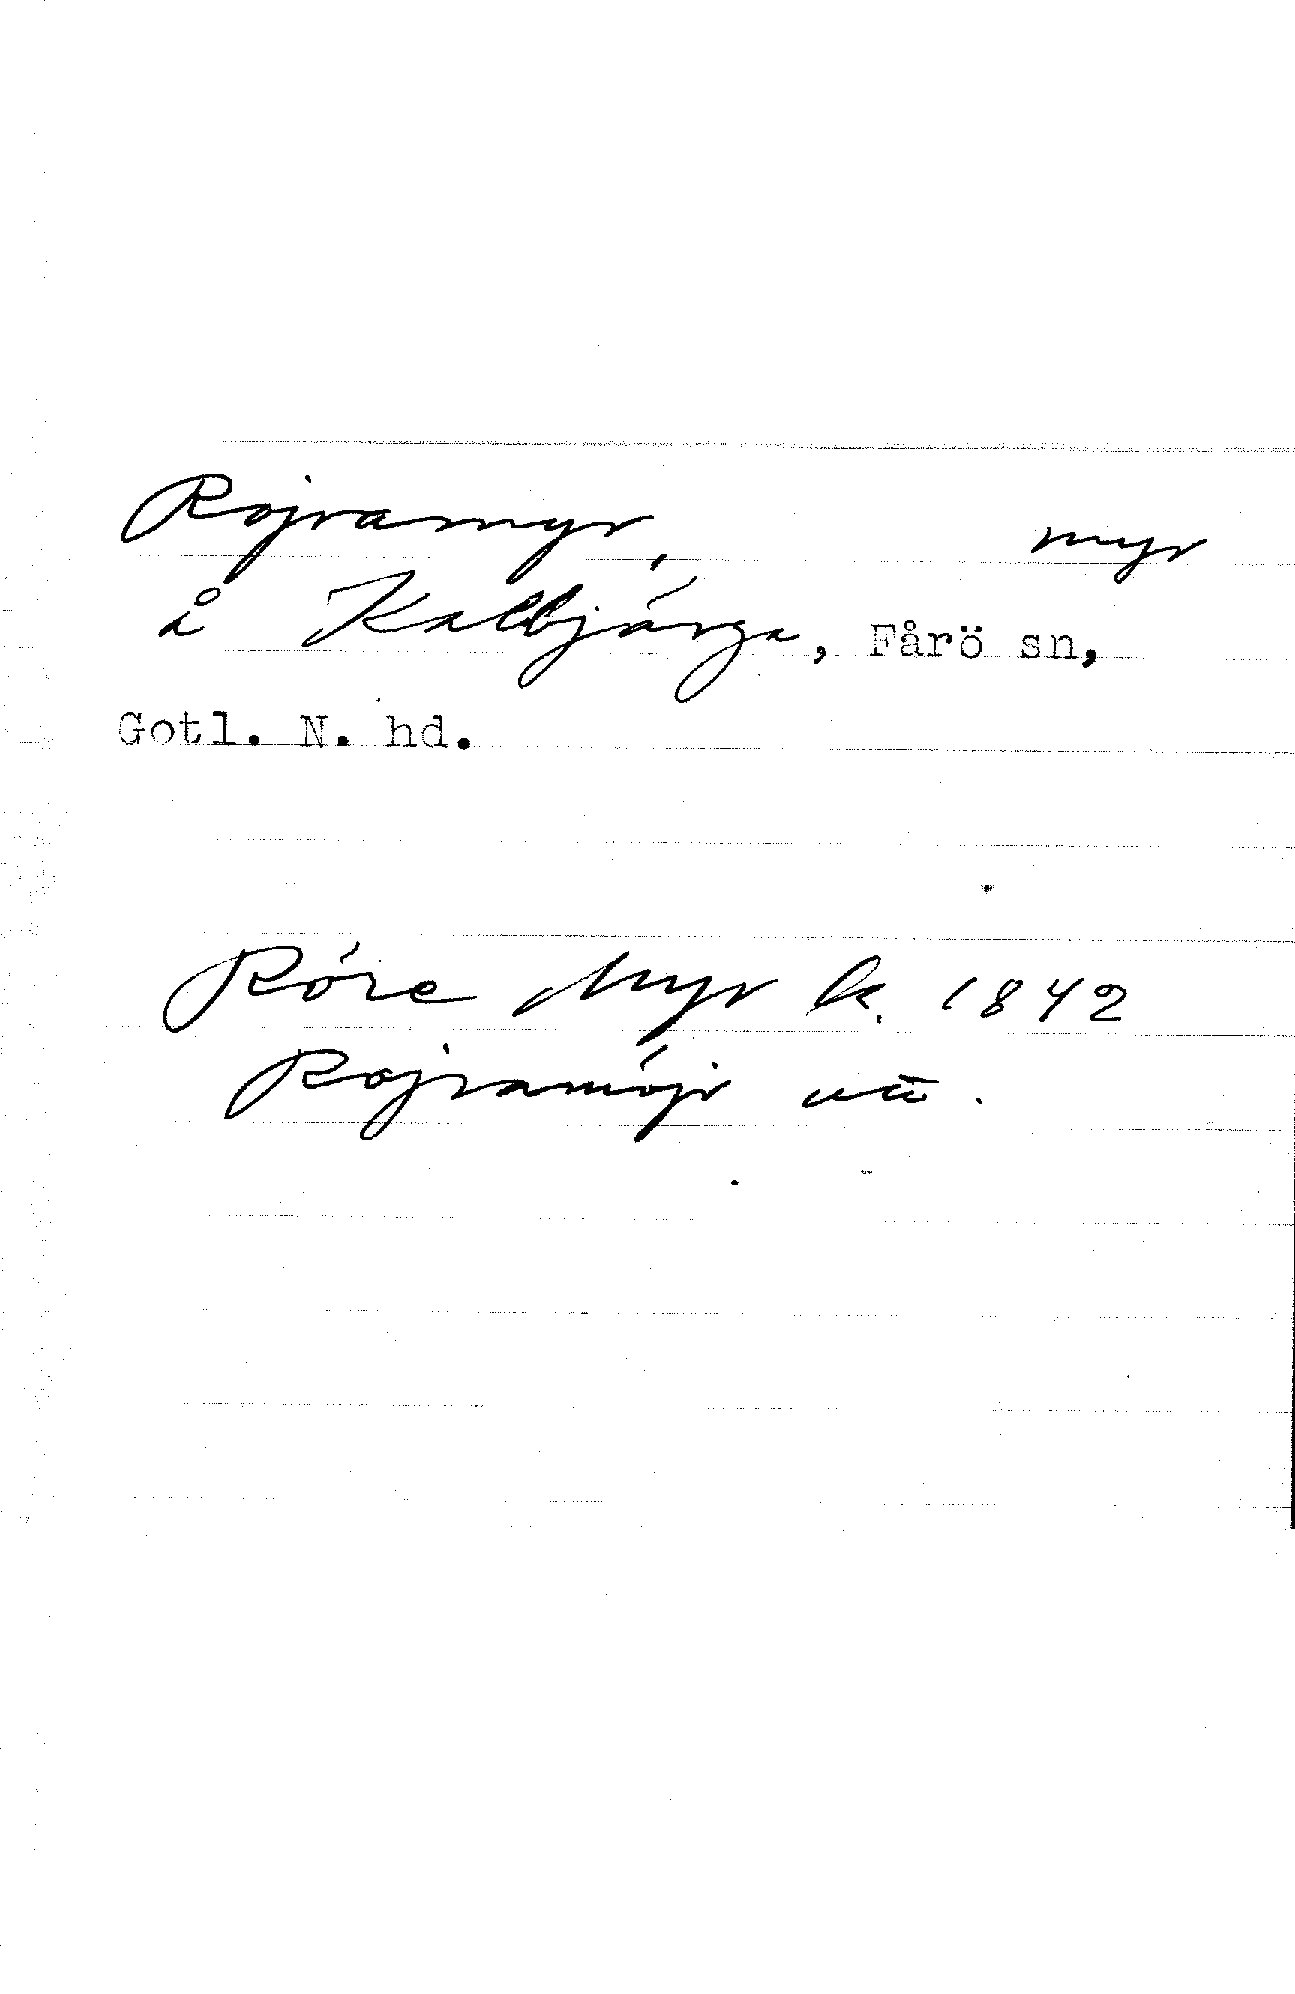 Rojramyr, myr
å Kalbjärga, Fårö sn,
Gotl. N. hd.
Röre Myr k. 1842
Rojramöjr